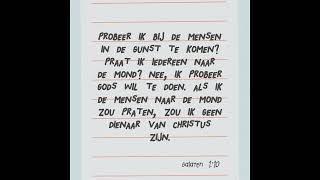 PROBEER IK BIJ DE MENSEN
IN DE GUNST TE KOMEN?
PRAAT IK IEDEREEN NAAR
DE MOND? NEE, IK PROBEER
GODS WIL TE DOEN. ALS IK
DE MENSEN NAAR DE MOND
ZOU PRATEN, ZOU IK GEEN
DIENAAR VAN CHRISTUS
ZIJN.
Galaten 1:10